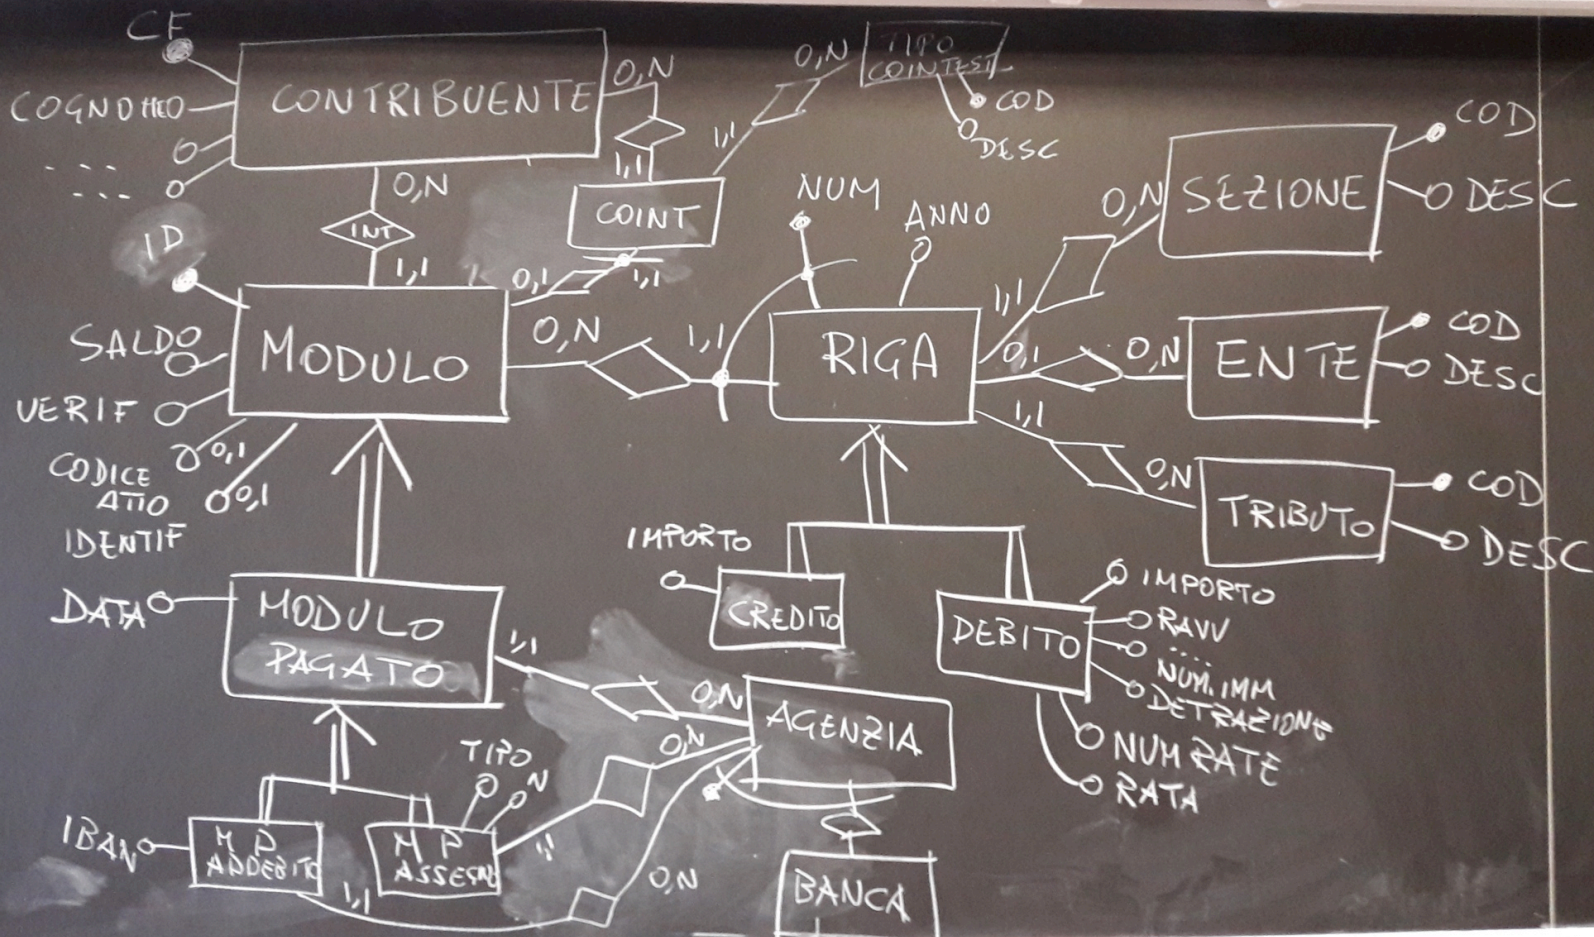 CF
CONTRIBUENTE
COGNOME O
0,N
0,N
TIPO
COINTEST
COD
DESC
1,1
1,1
0,N
INT
1,1
COINT
0,1
1,1
ID
MODULO
SALDO
VERIF
0,1
CODICE
ATTO
0,1
IDENTIF
0,N
1,1
NUM
ANNO
RIGA
1,1
0,N
SEZIONE
COD
DESC
0,1
0,N
ENTE
COD
DESC
1,1
0,N
TRIBUTO
COD
DESC
DATA
MODULO
PAGATO
1,1
0,N
IMPORTO
CREDITO
DEBITO
IMPORTO
RAVV
....
NUM. IMM
DETRAZIONE
NUM RATE
RATA
AGENZIA
0,N
TIPO
N
IBAN
M P
ADDEBITO
M P
ASSEGNO
1,1
1,1
0,N
BANCA